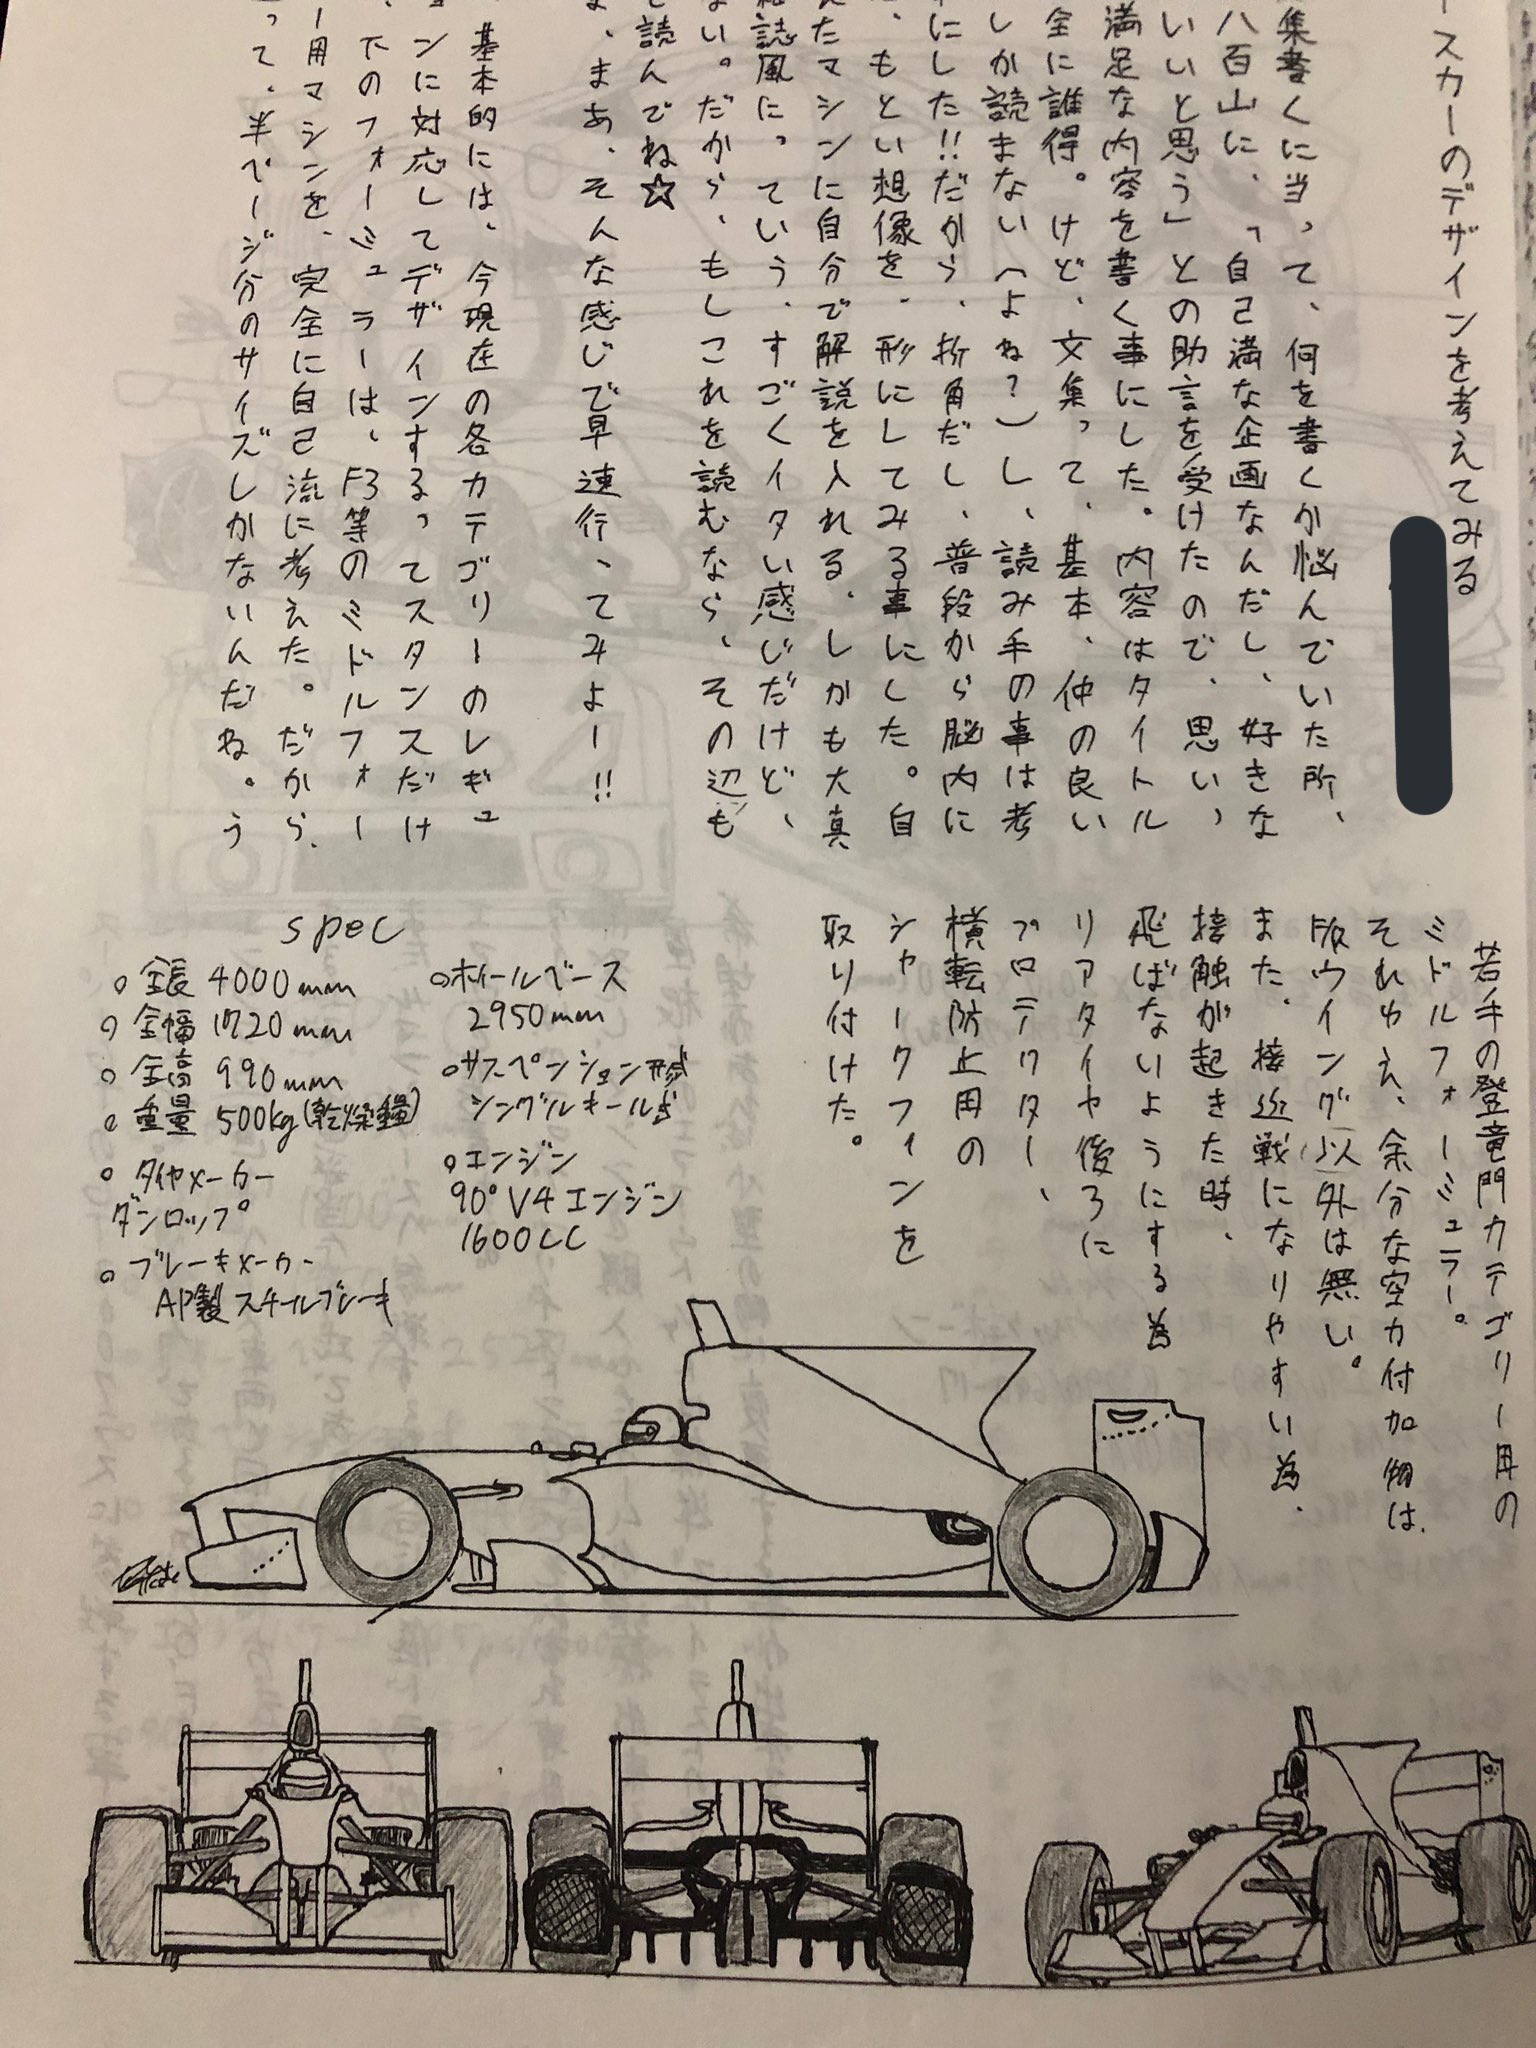 ースカーのデザインを考えてみる
集書くに当って、何を書くか悩んでいた所、
八百山に、「自己満な企画なんだし、好きな
いいと思う」との助言を受けたので、思い、
満足な内容を書く事にした。内容はタイトル
全に誰得。けど、文集って、基本、仲の良い
しか読まない(よね?)し、読み手の事は考
にした!!だから、折角だし、普段から脳内に
、もとい想像を、形にしてみる事にした。自
えたマシンに自分で解説を入れる、しかも大真
誌風に。っていう、すごくイタい感じだけど、
ない。だから、もしこれを読むなら、その辺も
読んでね☆
ま、まあ、そんな感じで早速行、てみよー!!
基本的には、今現在の各カテゴリーのレギュ
ョンに対応してデザインするってスタンスだけ
、下のフォーミュラーは、F3等のミドルフォー
ー用マシンを、完全に自己流に考えた。だから、
って、半ページ分のサイズしかないんだね。う
若手の登竜門カテゴリー用の
ミドルフォーミュラー。
それゆえ、余分な空力付加物は
版ウイング以外は無い。
また、接近戦になりやすい為、
接触が起きた時、
飛ばないようにする為
リアタイヤ後ろに
プロテクター、
横転防止用の
シャークフィンを
取り付けた。
spec
○全長 4000mm
○全幅 1720mm
○全高 990mm
○重量 500kg(乾燥重量)
○タイヤメーカー
ダンロップ
○ブレーキメーカー
AP製スチールブレーキ
○ホイールベース
2950mm
○サスペンション形式
シングルキール式
○エンジン
90°V4エンジン
1600CC